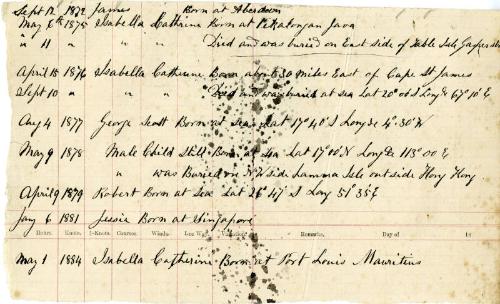 Sept 12 1872 James Born at Aberdeen
May 6th 1875 Isabella Cathrine Born at Pekalongan Java
" 11 " " " Died and was buried on East side of Table Isle Gasper Str
April 15 1876 Isabella Catherine Born about 30 miles East of Cape St James
Sept 10 " " " Died and was buried at sea Lat 20°06 S Long E 67°10 E
Aug 4 1877 George Scott Born at Sea Lat 17°40 S Long 4°30 W
May 9 1878 Male Child Still Born at Sea Lat 17°00 N Long E 113°00 E
" was Buried on N W side Lamma Isle outside Hong Kong
April 9 1879 Robert Born at Sea Lat 26°47 S Long 51°35 E
Jany 6 1881 Jessie Born at Singapore
Hours. Knots. ½-Knots. Courses. Winds. Lee Way. Remarks. Day of 18
May 1 1884 Isabella Catherine Born at Port Louis Mauritius